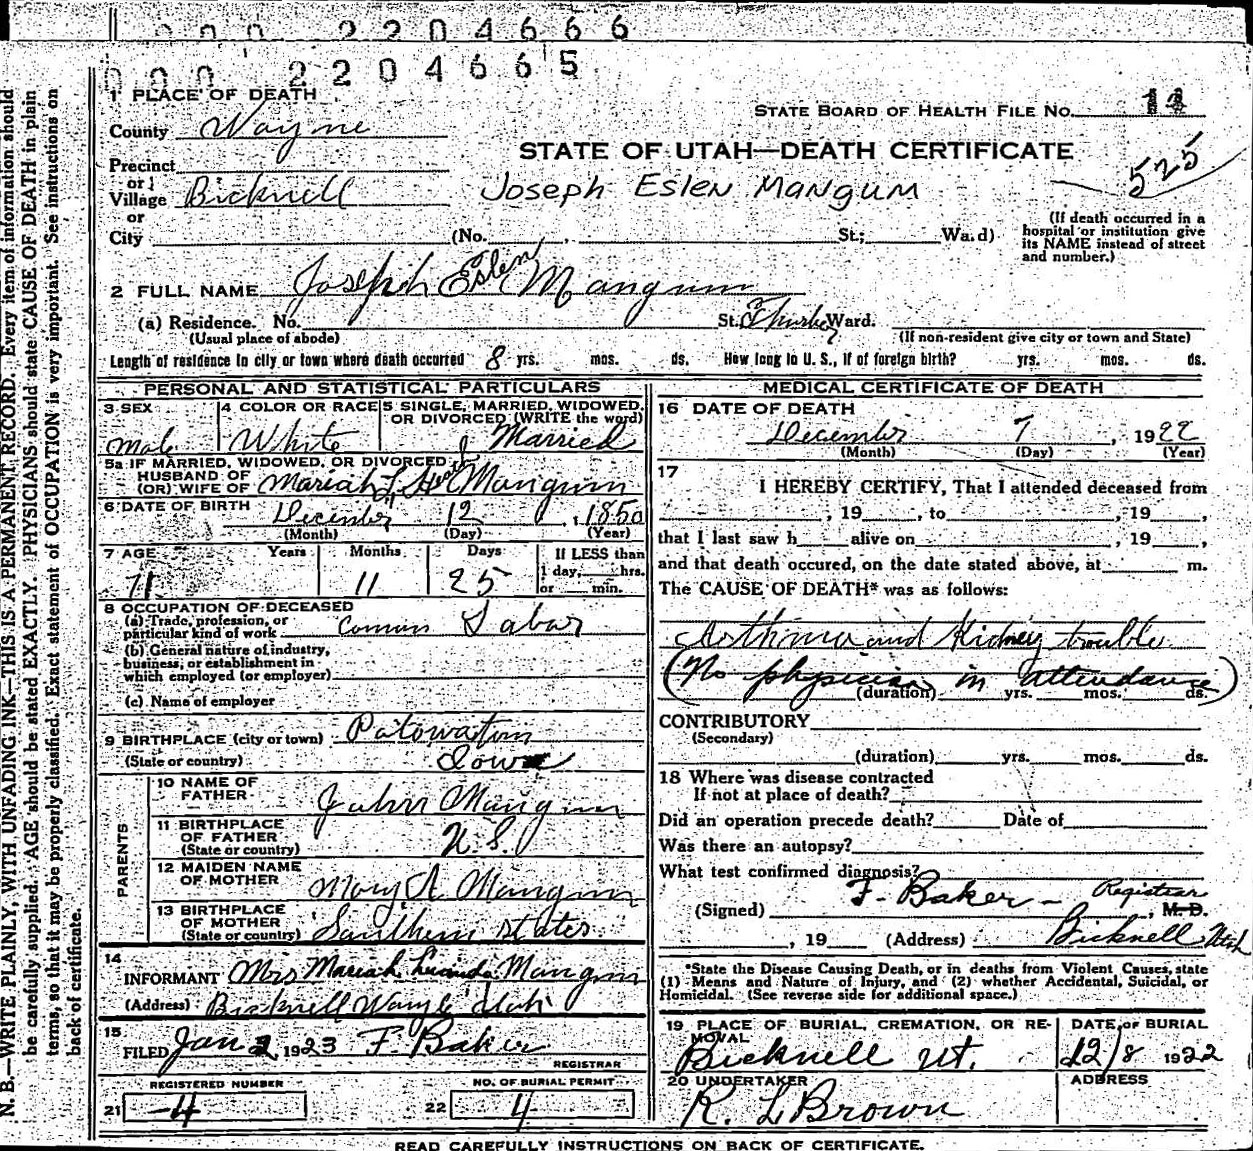 000 2204666
000 2204665
1 PLACE OF DEATH
STATE BOARD OF HEALTH FILE No. 11
County Wayne
STATE OF UTAH—DEATH CERTIFICATE
525
Precinct
or
Village Bicknell
Joseph Eslen Mangum
or
City (No. , St.; Wa.d)
(If death occurred in a hospital or institution give its NAME instead of street and number.)
2 FULL NAME Joseph Eslen Mangum
(a) Residence. No. St. Thurber Ward.
(Usual place of abode) (If non-resident give city or town and State)
Length of residence in city or town where death occurred 8 yrs. mos. ds. How long in U. S., if of foreign birth? yrs. mos. ds.
PERSONAL AND STATISTICAL PARTICULARS
3 SEX 4 COLOR OR RACE 5 SINGLE, MARRIED, WIDOWED, OR DIVORCED (WRITE the word)
Male White Married
5a IF MARRIED, WIDOWED, OR DIVORCED
HUSBAND OF
(OR) WIFE OF Mariah L Heath Mangum
6 DATE OF BIRTH December 12, 1850
(Month) (Day) (Year)
7 AGE Years Months Days If LESS than
71 11 25 1 day, hrs.
or min.
8 OCCUPATION OF DECEASED
(a) Trade, profession, or
particular kind of work Common Labor
(b) General nature of industry,
business, or establishment in
which employed (or employer)
(c) Name of employer
9 BIRTHPLACE (city or town) Potowattim
(State or country) Iowa
PARENTS
10 NAME OF
FATHER John Mangum
11 BIRTHPLACE
OF FATHER
(State or country) U.S.
12 MAIDEN NAME
OF MOTHER Mary A. Mangum
13 BIRTHPLACE
OF MOTHER
(State or country) Southern states
14
INFORMANT Mrs Mariah Luanda Mangum
(Address) Bicknell Wayne Utah
15
FILED Jan 2 1923 F. Baker
REGISTRAR
REGISTERED NUMBER NO. OF BURIAL PERMIT
21 4 22 4
MEDICAL CERTIFICATE OF DEATH
16 DATE OF DEATH
December 7, 1922
(Month) (Day) (Year)
17
I HEREBY CERTIFY, That I attended deceased from
, 19 , to , 19 ,
that I last saw h alive on , 19 ,
and that death occured, on the date stated above, at m.
The CAUSE OF DEATH* was as follows:
Asthma and Kidney trouble
(No physician in attendance)
(duration) yrs. mos. ds.
CONTRIBUTORY
(Secondary)
(duration) yrs. mos. ds.
18 Where was disease contracted
If not at place of death?
Did an operation precede death? Date of
Was there an autopsy?
What test confirmed diagnosis?
(Signed) F. Baker - Registrar, M.D.
, 19 (Address) Bicknell Utah
*State the Disease Causing Death, or in deaths from Violent Causes, state
(1) Means and Nature of Injury, and (2) whether Accidental, Suicidal, or
Homicidal. (See reverse side for additional space.)
19 PLACE OF BURIAL, CREMATION, OR REMOVAL DATE of BURIAL
Bicknell Ut. 12/8 1922
20 UNDERTAKER ADDRESS
R. L Brown
READ CAREFULLY INSTRUCTIONS ON BACK OF CERTIFICATE.
N. B.—WRITE PLAINLY, WITH UNFADING INK—THIS IS A PERMANENT RECORD. Every item of information should
be carefully supplied. AGE should be stated EXACTLY. PHYSICIANS should state CAUSE OF DEATH in plain
terms, so that it may be properly classified. Exact statement of OCCUPATION is very important. See instructions on
back of certificate.